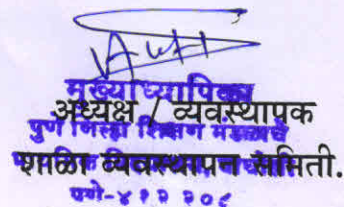 मुख्याध्यापिका
अध्यक्ष / व्यवस्थापक
पुणे जिल्हा शिक्षण मंडळाचे
शाळा व्यवस्थापन समिती.
पुणे-४११२०८